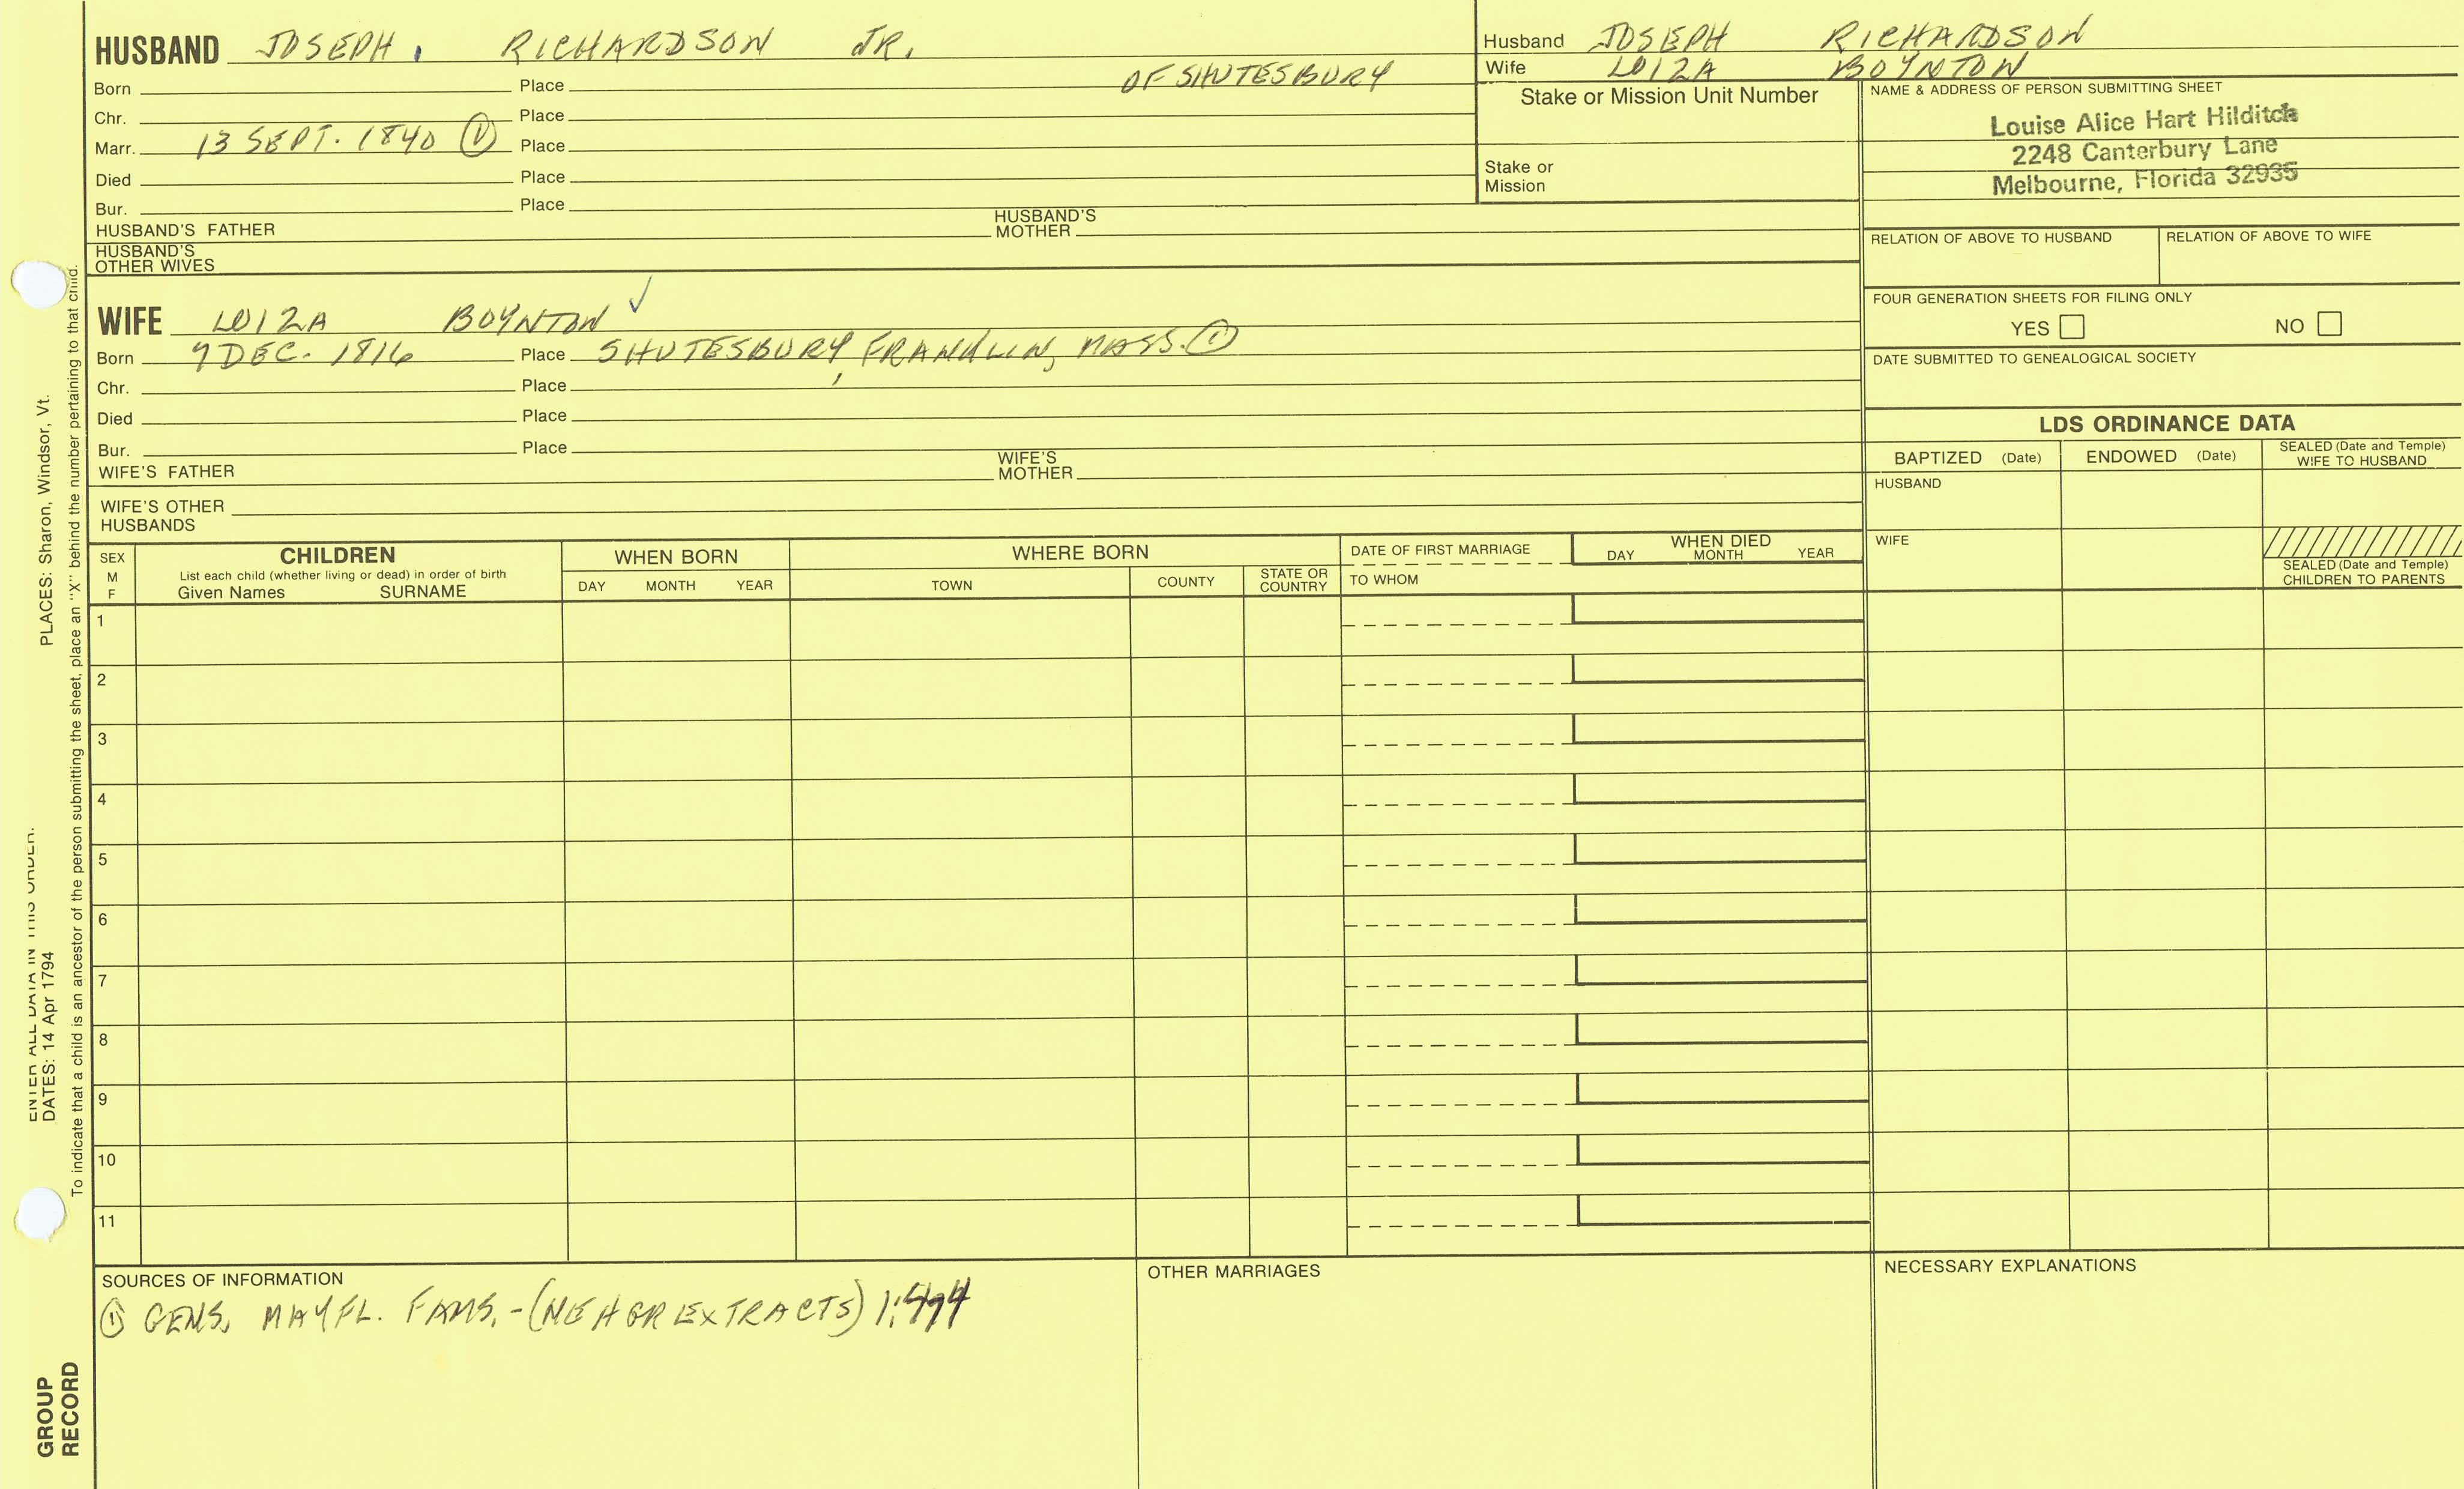 HUSBAND JOSEPH. RICHARDSON JR.
OF SHUTESBURY
Born Place
Chr. Place
Marr. 13 SEPT. 1840 ① Place
Died Place
Bur. Place
HUSBAND'S FATHER HUSBAND'S MOTHER
HUSBAND'S OTHER WIVES
Husband JOSEPH RICHARDSON
Wife LOIZA BOYNTON
Stake or Mission Unit Number
Stake or
Mission
NAME & ADDRESS OF PERSON SUBMITTING SHEET
Louise Alice Hart Hilditch
2248 Canterbury Lane
Melbourne, Florida 32935
RELATION OF ABOVE TO HUSBAND RELATION OF ABOVE TO WIFE
FOUR GENERATION SHEETS FOR FILING ONLY
YES NO
DATE SUBMITTED TO GENEALOGICAL SOCIETY
WIFE LOIZA BOYNTON ✓
Born 9 DEC. 1816 Place SHUTESBURY, FRANKLIN, MASS. ①
Chr. Place
Died Place
Bur. Place
WIFE'S FATHER WIFE'S MOTHER
WIFE'S OTHER HUSBANDS
LDS ORDINANCE DATA
BAPTIZED (Date) ENDOWED (Date) SEALED (Date and Temple) WIFE TO HUSBAND
HUSBAND
WIFE
SEALED (Date and Temple)
CHILDREN TO PARENTS
SEX
M
F
CHILDREN
List each child (whether living or dead) in order of birth
Given Names SURNAME
WHEN BORN
DAY MONTH YEAR
WHERE BORN
TOWN COUNTY STATE OR COUNTRY
DATE OF FIRST MARRIAGE
TO WHOM
WHEN DIED
DAY MONTH YEAR
1
2
3
4
5
6
7
8
9
10
11
SOURCES OF INFORMATION
① GENS. MAYFL. FAMS. - (NEHGR EXTRACTS)
OTHER MARRIAGES
NECESSARY EXPLANATIONS
ENTER ALL DATA IN THIS ORDER.
DATES: 14 Apr 1794 PLACES: Sharon, Windsor, Vt.
To indicate that a child is an ancestor of the person submitting the sheet, place an "X" behind the number pertaining to that child.
GROUP
RECORD